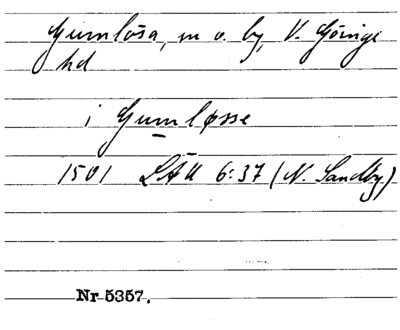 Gumlösa, sn o. by, V. Göinge
hd
i Gumløsse
1501 LÄU 6:37 (N. Sandby)
Nr 5357.